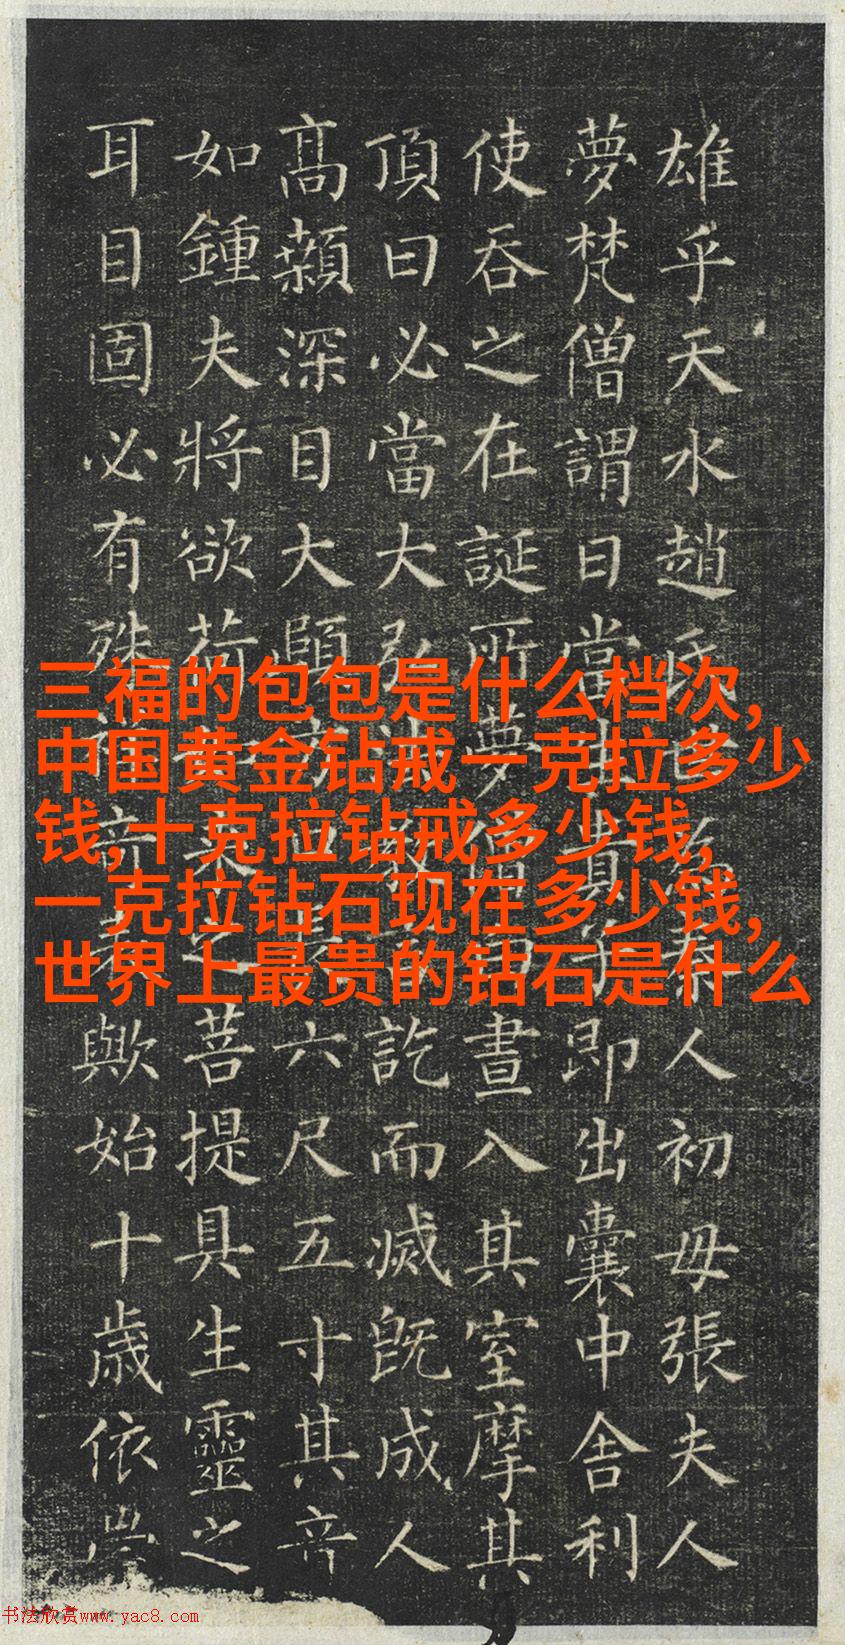 雄乎天水趙氏世為秦人初母張夫人
夢梵僧謂曰當生貴子即出囊中舍利
使吞之在誕所夢僧白晝入其室摩其
頂曰必當大弘法教言訖而滅既成人
高顙深目大頤方口長六尺五寸其音
如鍾夫將欲荷如來之菩提具生靈之
耳目固必有殊祥奇表歟始十歲依
三福的包包是什么档次,
中国黄金钻戒一克拉多少
钱,十克拉钻戒多少钱,
一克拉钻石现在多少钱,
世界上最贵的钻石是什么
书法欣赏www.yac8.com